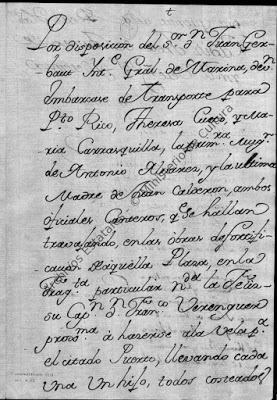 Por disposicion del S.or D.n Fran.co Ger-
baut Int.e Grâl. de Marina, de
Embarcase de Transporte para
Pto. Rico, Theresa Cueto, y Ma-
ria Carrasquilla, la prim.a Mug.r
de Antonio Alejaren, y la ultima
Madre de Juan Calderon, ambos
oficiales Canteros, q.e Se hallan
travajando, en las obras de Fortifi-
cacion de aquella Plaza, en la
Frag.ta particular n.da la
su Cap.n D.n Fran.co Verenguer
prox.ma à hacerse ala Vela p.a
el citado Puerto, llevando cada
una un hijo, todos costeados